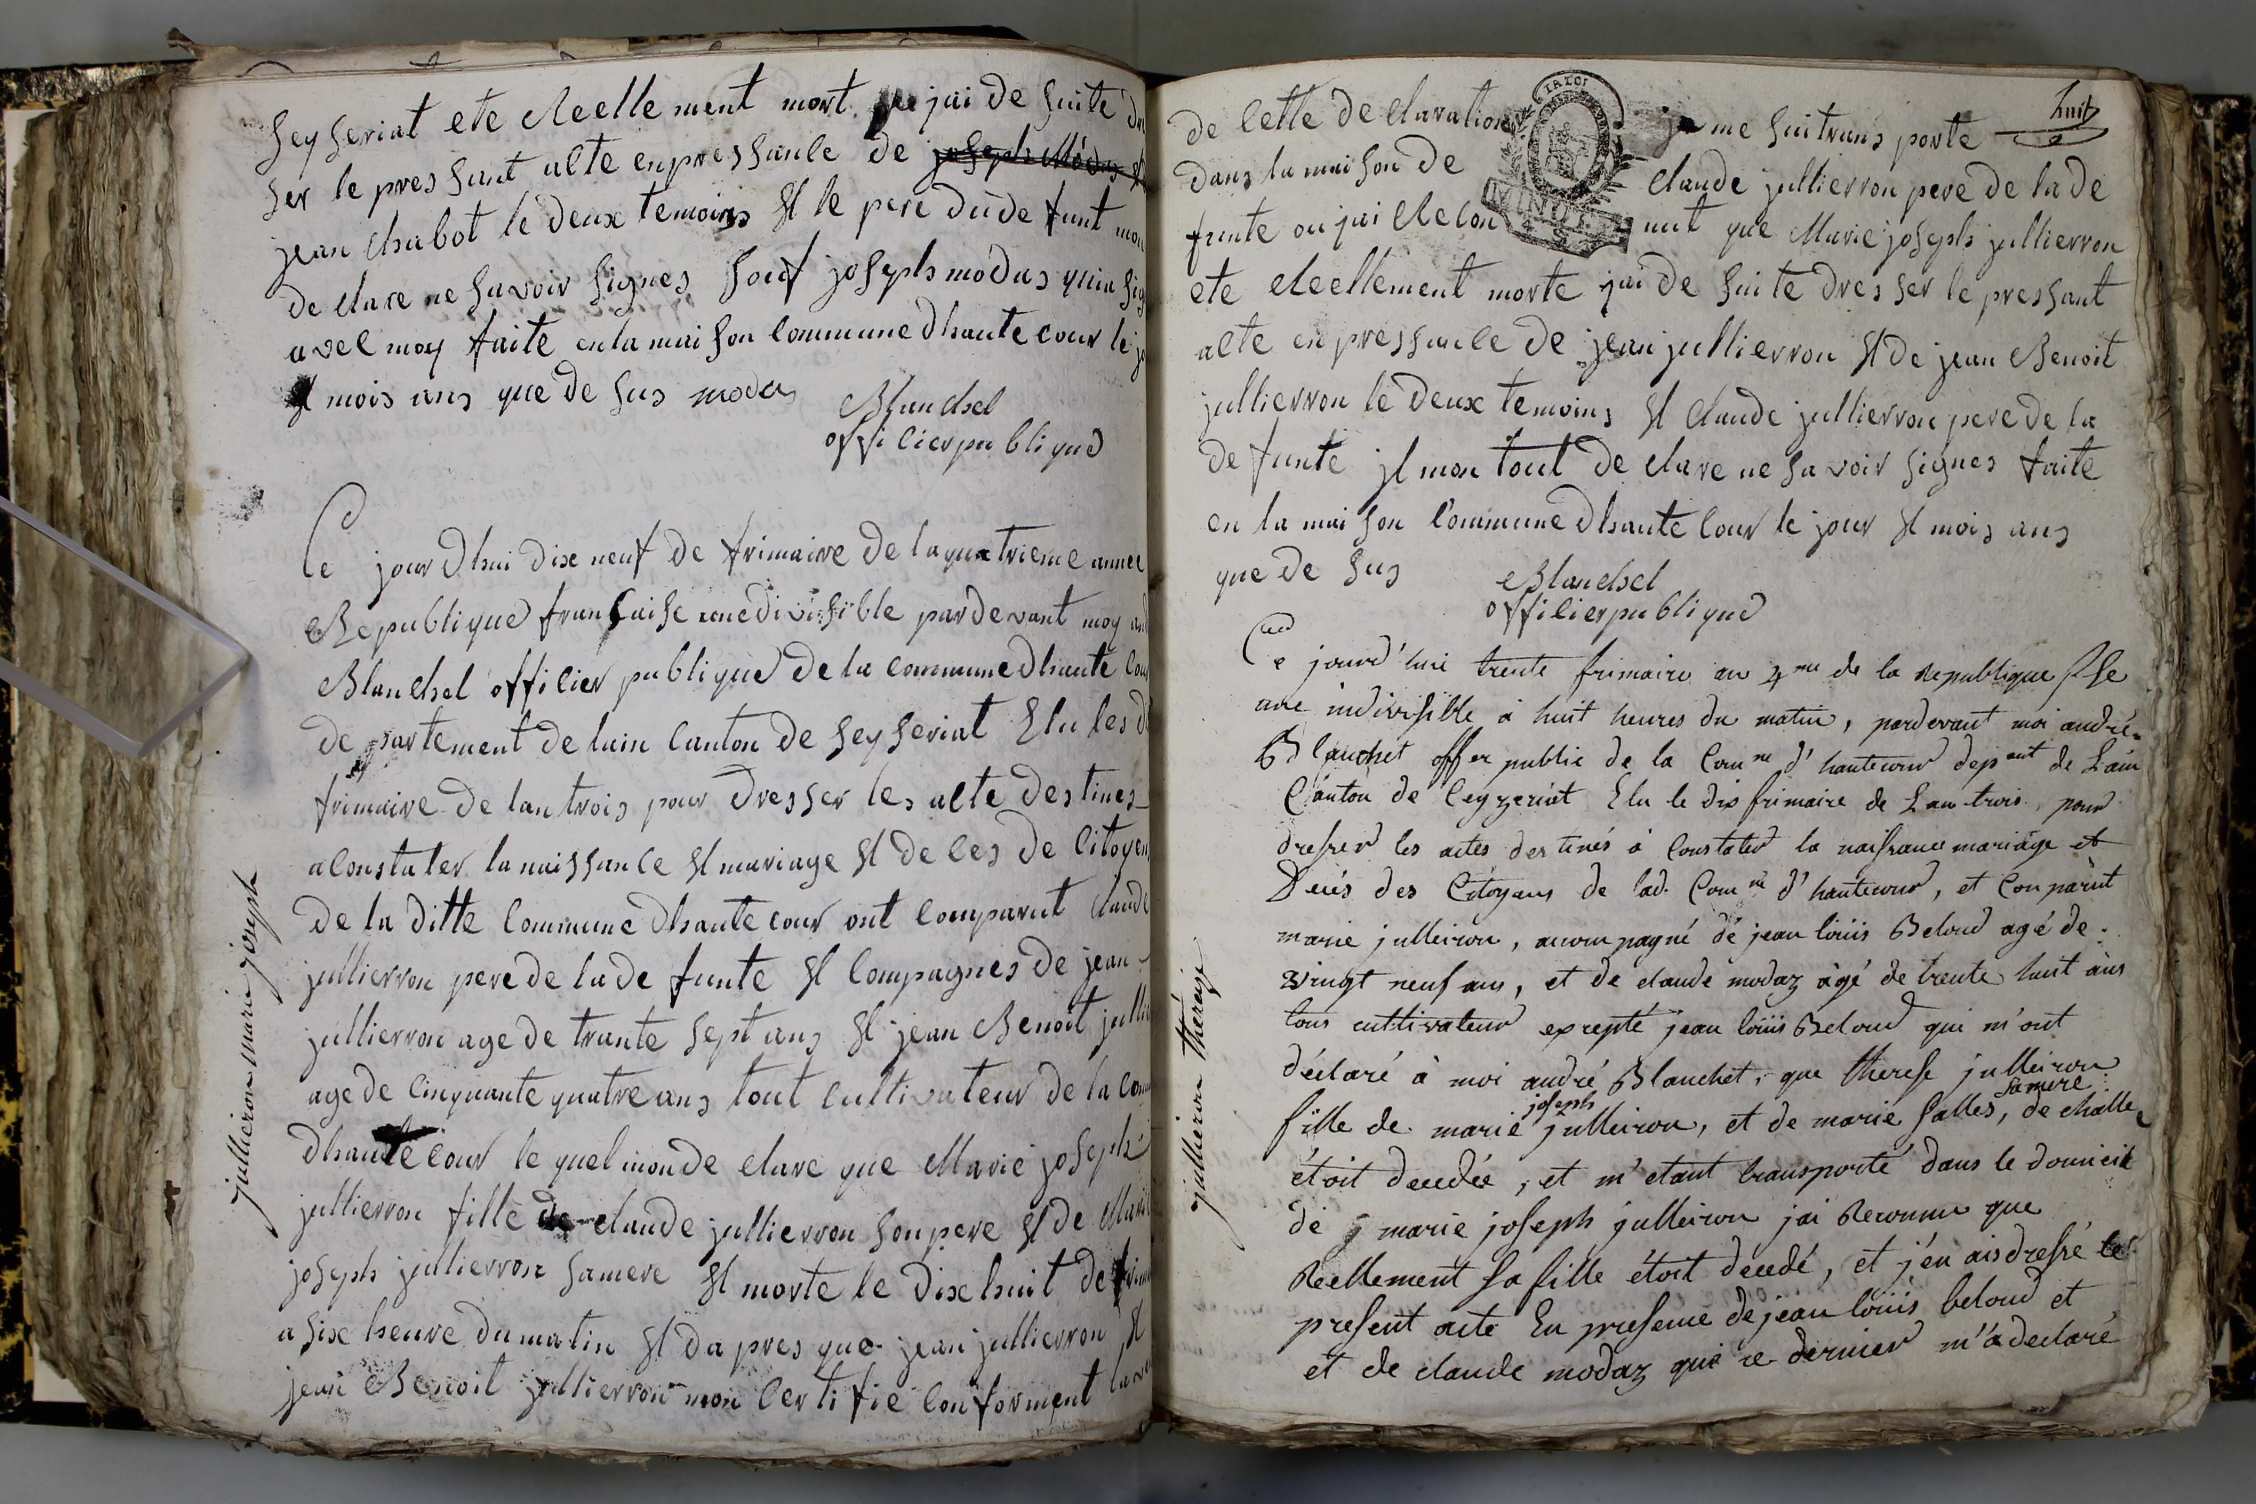 seyseriat ete Reelle ment mort jai de suite
ser le pres sant alte enpressanle de joseph Modas
jean Chabot le deux temoins Et le pere dude funt
de clare ne savoir signes souf joseph modas quia
avel moy faite enla mai son lommune dhaute cour le
Et mois ans que de sus modas
Blanchel
offilier publique
Ce jour dhui dix neuf de frimaire de la quatrieme annee
Republique franCaise une divissible pardevant moy
Blanchel offilier publique de la commune dhaute
de partement de lain Canton de seyseriat Elu les
frimaire de lan trois pour dresser les alte destines
alonstater la naissanle Et mariage Et de les de litoyen
de la ditte Commune dhaute cour ont Comparut Claude
jullierron pere de la de funte Et Compagnes de jean
jullierron age de trante sept ans Et jean Benoit
age de Cinquante quatre ans tout cultivateur de la
dhaute cour le quel monde clare que Marie joseph
jullierron fille de claude jullierron son pere Et de
joseph jullierron samere Et morte le dixe huit de
a sixe heure du matin Et da pres que jean jullierron Et
jean Benoit jullierron mon Certifie Conforment
jullieron marie joseph
huit
de Cette declaration je me sui trans porte
dans la mai son de claude jullierron pere de la de
funte ou jai Relon nut que Marie joseph jullierron
ete Reellement morte jai de suite dres ser le pressant
alte en pressanle de jean jullierron Et de jean Benoit
jullierron le deux temoins Et claude jullierron pere de la
de funte jl mon tout de clare ne sa voir signes faite
en la mai son Commune dhaute Cour le jour Et mois ans
que de sus
Blanchel
offilier publique
Ce jourd'hui trente frimaire an 4me de la Republique fse
une indivisible à huit heures du matin, pardevant moi andré
Blanchet offer public de la Comne d'hautecour depent de Lain
Canton de Ceyzeriat Elu le dix frimaire de Lan trois, pour
dresser les actes destinés à Constater la naissance mariage et
Decés des Citoyens de lad. Comne d'hautecour, et Comparut
marie julleiron, acompagné de jean loüis Beloud agé de
vingt neuf ans, et de claude modaz agé de trente huit ans
tous cultivateur exepté jean loüis Beloud qui m'ont
déclaré à moi andré Blanchet, que therese julleiron
fille de marie joseph julleiron, et de marie salles, samere de challe,
étoit decedée, et m'etant transporté dans le domicile
de j marie joseph julleiron jai Reconnu que
Reellement sa fille étoit decedé, et j'en ais dressé le
present acte En presence de jean loüis beloud et
et de claude modaz qui ce dernier m'a declaré
jullieron thereze